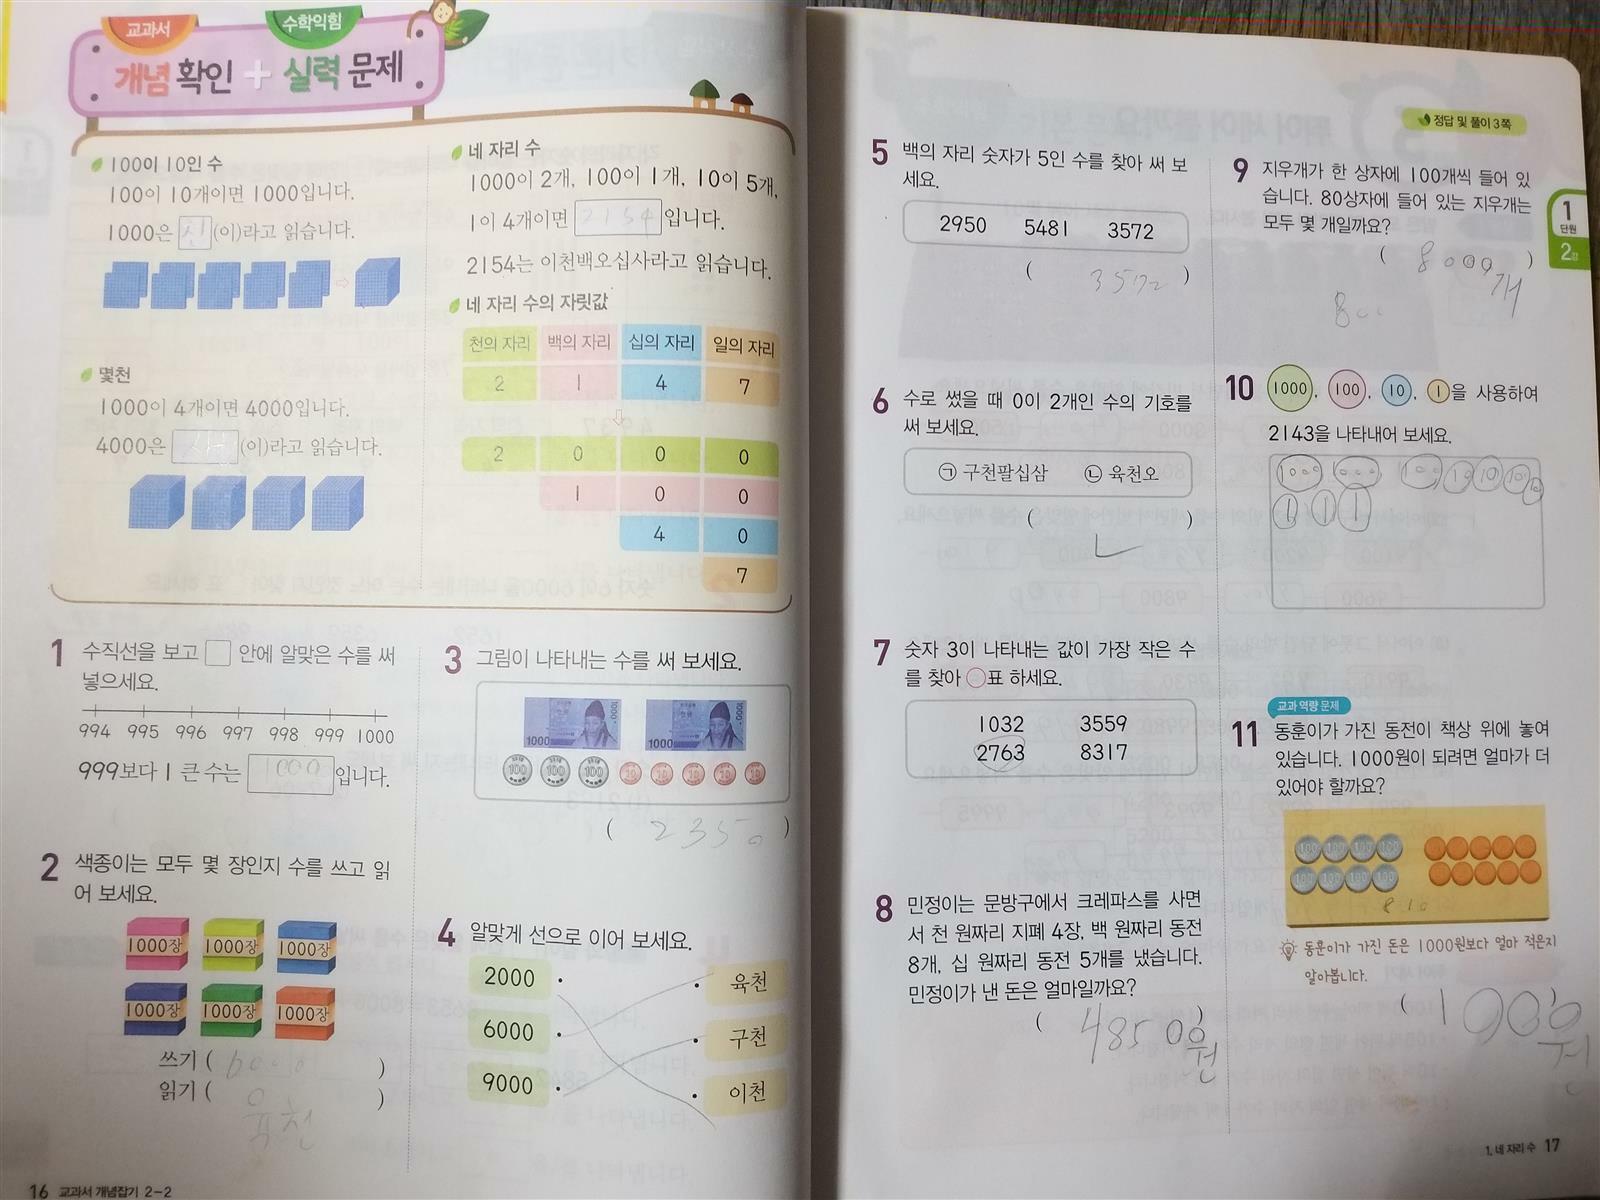 교과서
수학익힘
개념 확인 + 실력 문제
100이 10인 수
100이 10개이면 1000입니다.
1000은 천 (이)라고 읽습니다.
몇천
1000이 4개이면 4000입니다.
4000은 (이)라고 읽습니다.
네 자리 수
1000이 2개, 100이 1개, 10이 5개,
1이 4개이면 2154 입니다.
2154는 이천백오십사라고 읽습니다.
네 자리 수의 자릿값
천의 자리 백의 자리 십의 자리 일의 자리
2 1 4 7
2 0 0 0
1 0 0
4 0
7
1 수직선을 보고 □ 안에 알맞은 수를 써
넣으세요.
994 995 996 997 998 999 1000
999보다 1 큰 수는 1000 입니다.
2 색종이는 모두 몇 장인지 수를 쓰고 읽
어 보세요.
1000장 1000장 1000장
1000장 1000장 1000장
쓰기 ( 6000 )
읽기 ( 육천 )
3 그림이 나타내는 수를 써 보세요.
1000 1000
100 100 100 10 10 10 10 10
( 2350 )
4 알맞게 선으로 이어 보세요.
2000 · · 육천
6000 · · 구천
9000 · · 이천
16 교과서 개념잡기 2-2
정답 및 풀이 3쪽
5 백의 자리 숫자가 5인 수를 찾아 써 보
세요.
2950 5481 3572
( 3572 )
6 수로 썼을 때 0이 2개인 수의 기호를
써 보세요.
㉠ 구천팔십삼 ㉡ 육천오
( )
ㄴ
7 숫자 3이 나타내는 값이 가장 작은 수
를 찾아 ○표 하세요.
1032 3559
2763 8317
8 민정이는 문방구에서 크레파스를 사면
서 천 원짜리 지폐 4장, 백 원짜리 동전
8개, 십 원짜리 동전 5개를 냈습니다.
민정이가 낸 돈은 얼마일까요?
( 4850원 )
9 지우개가 한 상자에 100개씩 들어 있
습니다. 80상자에 들어 있는 지우개는
모두 몇 개일까요?
( 8000개 )
800
1
단원
2강
10 1000, 100, 10, 1을 사용하여
2143을 나타내어 보세요.
1000 1000 100 10 10 10 10
1 1 1
교과 역량 문제
11 동훈이가 가진 동전이 책상 위에 놓여
있습니다. 1000원이 되려면 얼마가 더
있어야 할까요?
100 100 100 100
100 100 100 100
동훈이가 가진 돈은 1000원보다 얼마 적은지
알아봅니다.
( 100원 )
1. 네 자리 수 17